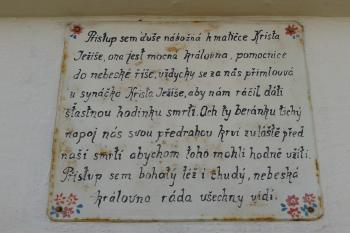 Přistup sem duše nábožná k matičce Krista
Ježíše, ona jest mocná královna, pomocnice
do nebeské říše, vždycky se za nás přimlouvá
u synáčka Krista Ježíše, aby nám ráčil dáti
šťastnou hodinku smrti. Och ty beránku tichý
napoj nás svou předrahou krví zvláště před
naší smrtí abychom toho mohli hodně užíti.
Přistup sem bohatý též i chudý, nebeská
královna ráda všechny vidí.